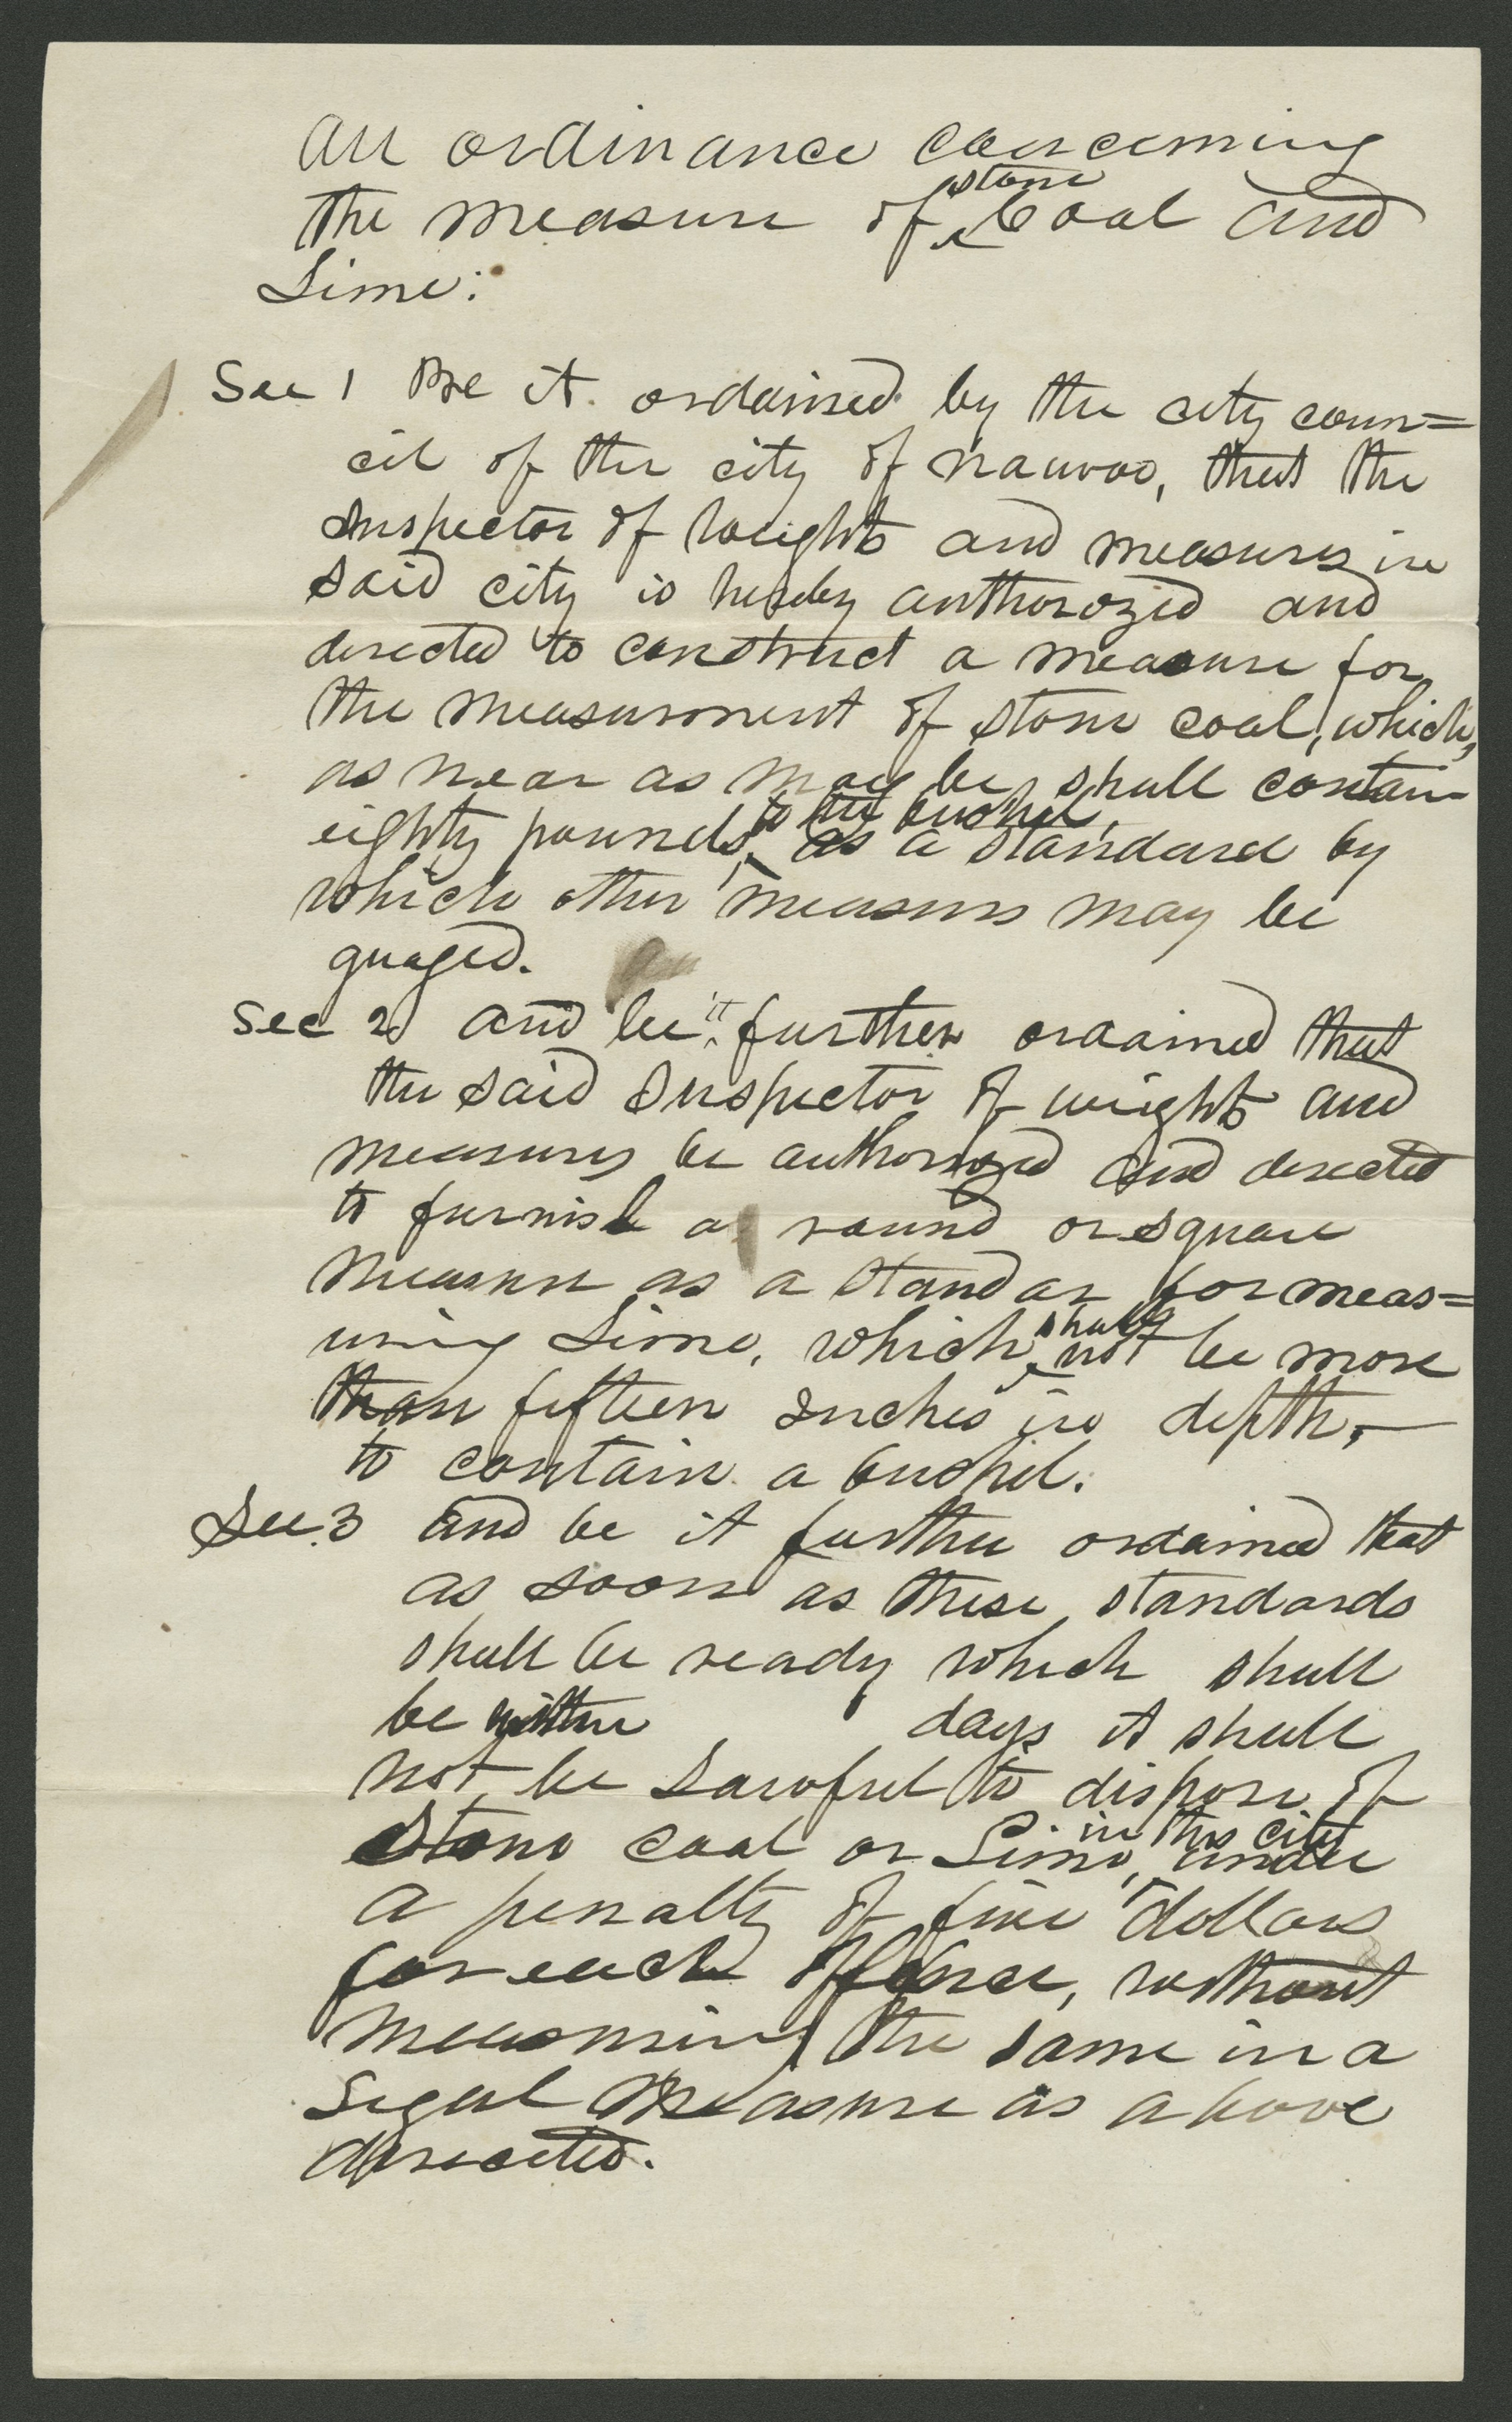 An ordinance concerning
the measure of stone Coal and
Lime:
Sec 1 Be it ordained by the city coun=
cil of the city of Nauvoo, that the
Inspector of weights and measures in
said city is hereby authorozed and
derected to construct a measure for
the measurement of stone coal, which,
as near as may be, shall contain
eighty pounds, to the bushel, as a standard by
which other measures may be
guaged.
Sec 2 and be it further ordained that
the said Inspector of weights and
measures be authorozed and derected
to furnish a round or square
measure as a standar for meas=
uring Lime, which shall not be more
than fifteen Inches in depth,—
to contain a bushel.
Sec. 3 and be it further ordained that
as soon as these standards
shall be ready which shall
be within days it shall
not be Lawful to dispose of
Stone coal or Lime, in this city under
a penalty of five dollars
for each offence, without
measuring the same in a
Legal measure as above
derected.